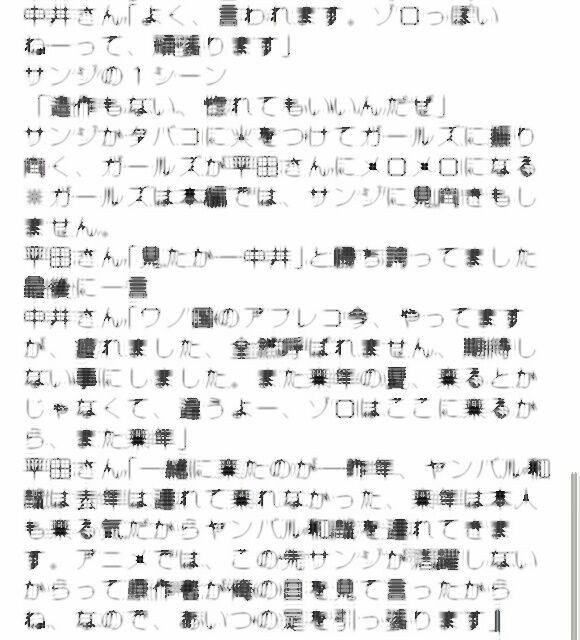 中井さん「よく、言われます。ゾロっぽい
ねーって、頑張ります」
サンジの1シーン
「造作もない、惚れてもいいんだぜ」
サンジがタバコに火をつけてガールズに振り
向く、ガールズが平田さんにメロメロになる
※ガールズは本編では、サンジに見向きもし
ません。
平田さん「見たかー中井」と勝ち誇ってました
最後に一言
中井さん「ワノ国のアフレコ今、やってます
が、 れました、全然呼ばれません、 し
ない事にしました。また来年の夏、来るとか
じゃなくて、違うよー、ゾロはここに来るか
ら、また来年」
平田さん「一緒に来たのが一昨年、ヤンバル
は去年は連れて来れなかった、来年は本人
も来る気だからヤンバル を連れてきま
す。アニメでは、この先サンジが活躍しない
からって原作者が俺の目を見て言ったから
ね、なので、あいつの足を引っ張ります」